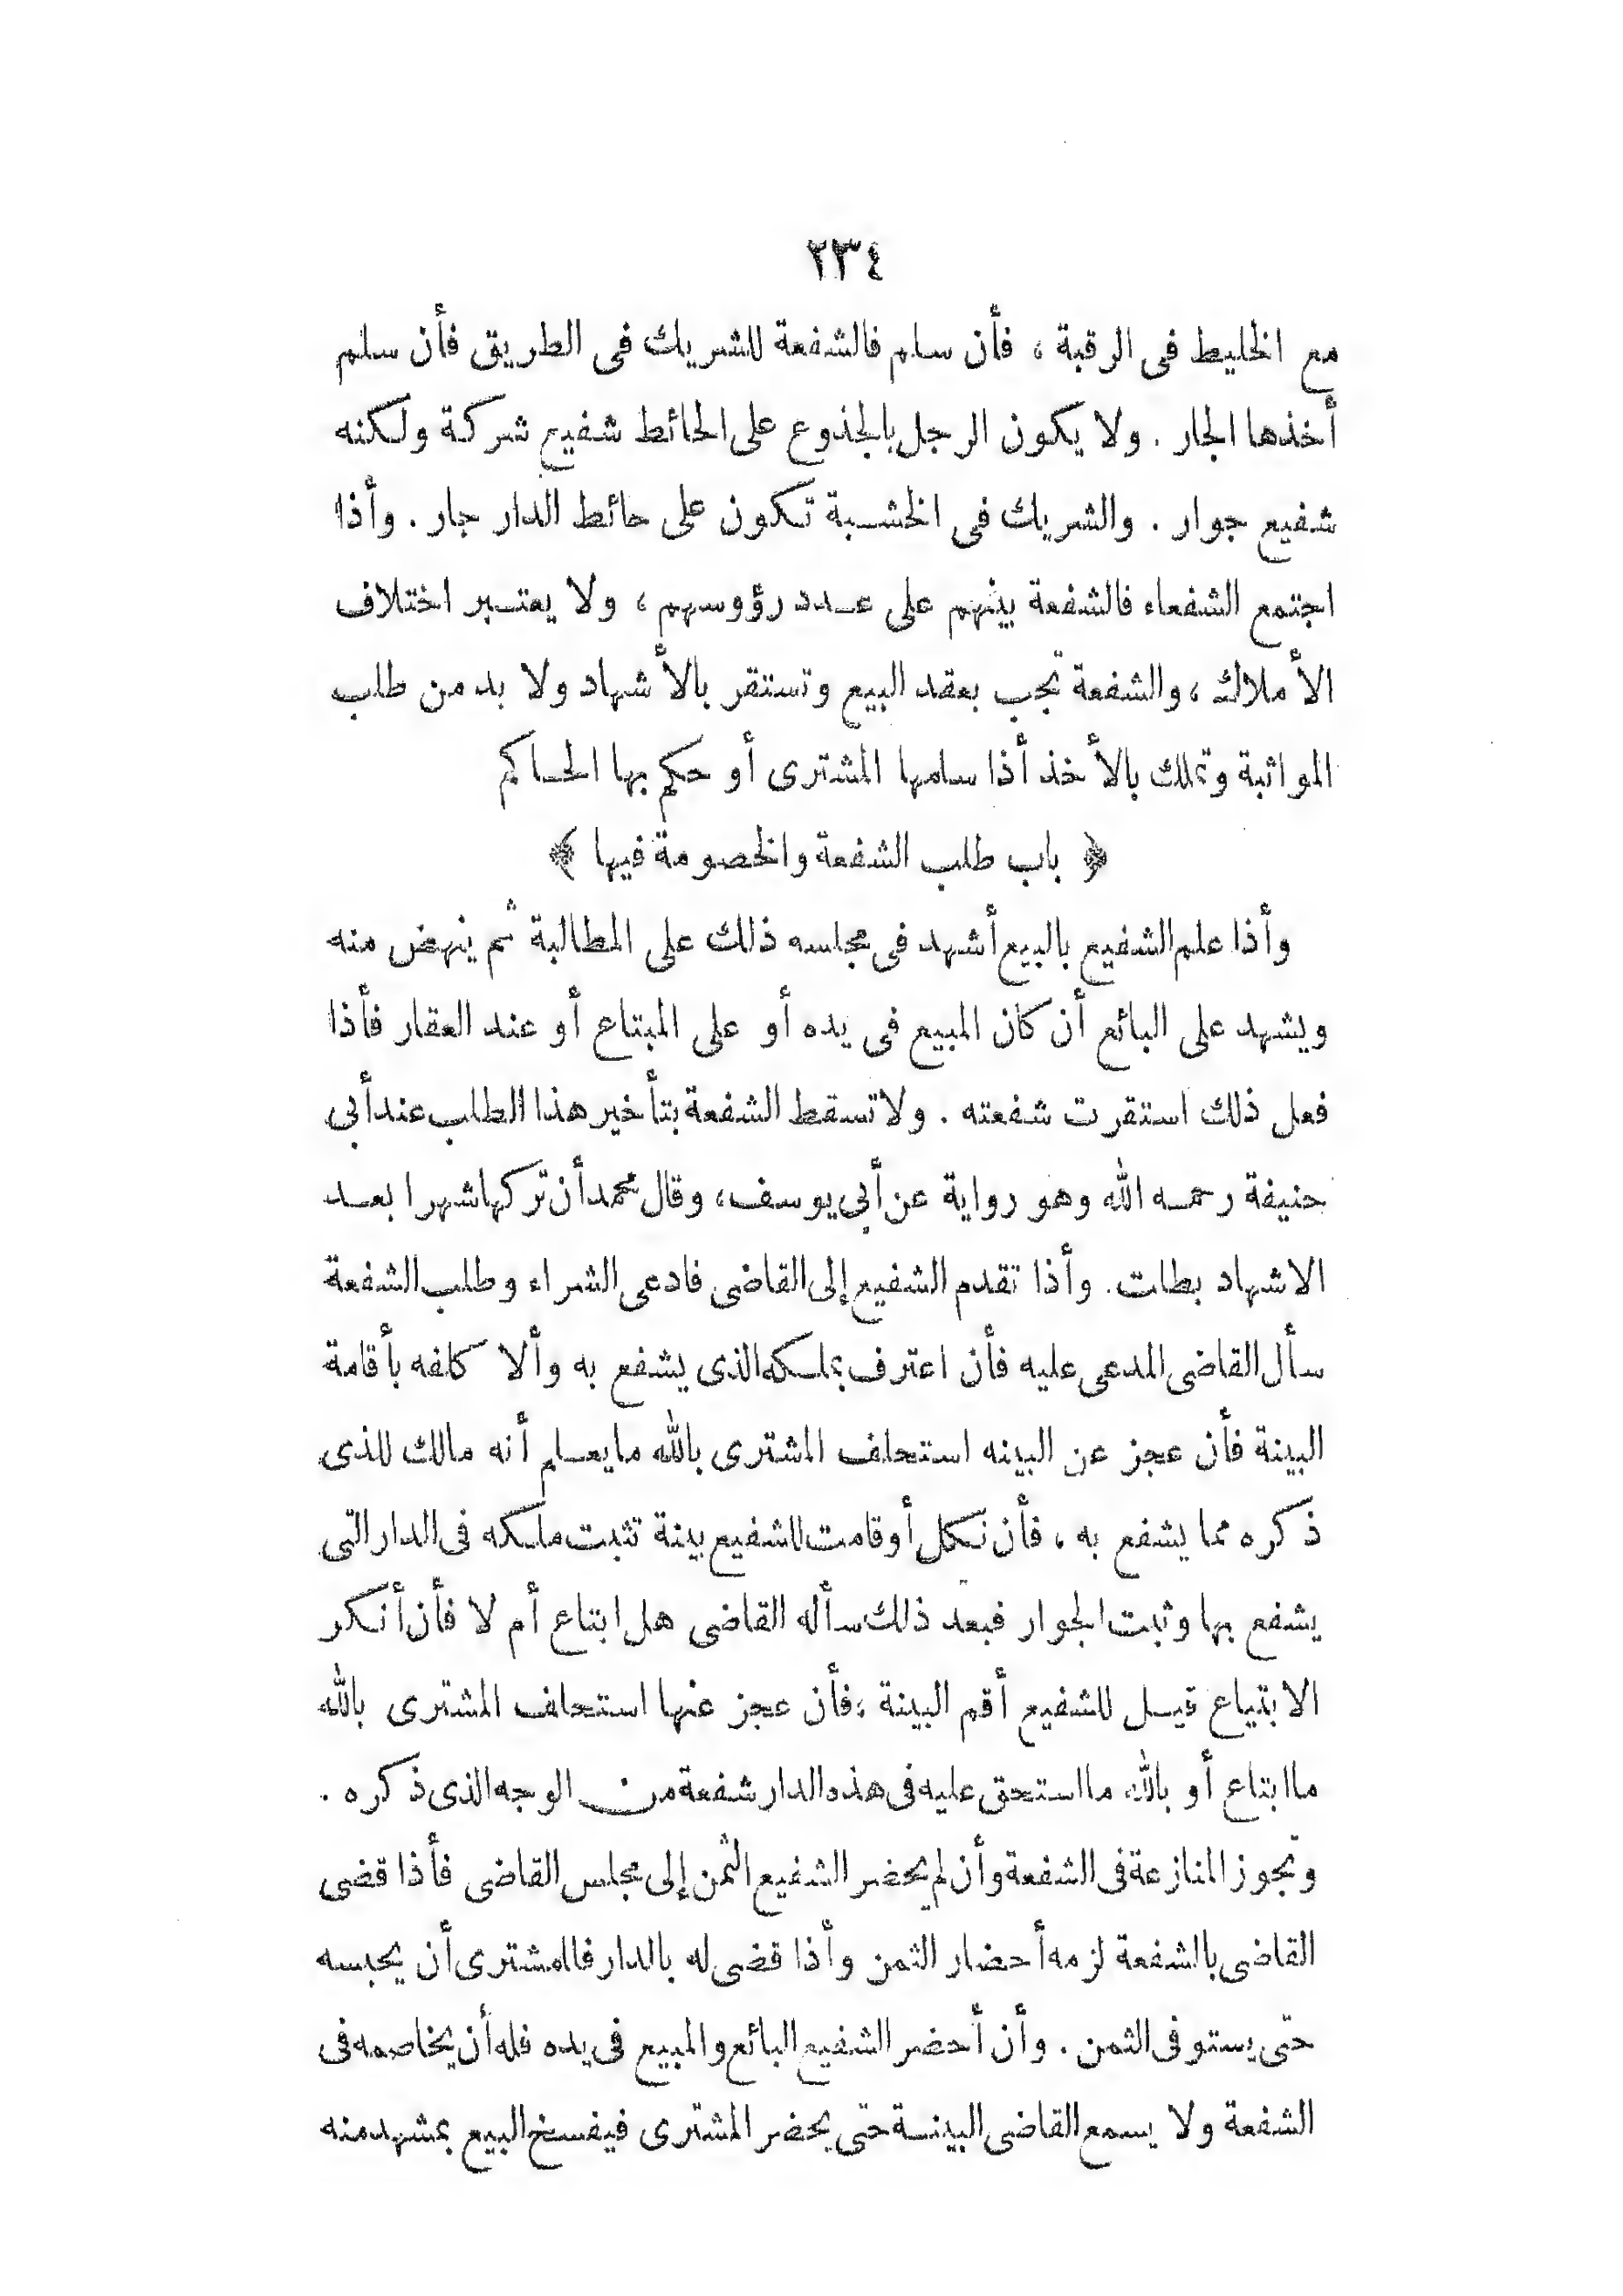 ٢٣٤
مع الخليط فى الرقبة ، فأن سلم فالشفعة للشريك فى الطريق فأن سلم
أخذها الجار . ولا يكون الرجل بالجذوع على الحائط شفيع شركة ولكنه
شفيع جوار . والشريك فى الخشبة تكون على حائط الدار جار . وأذا
اجتمع الشفعاء فالشفعة بينهم على عدد رؤوسهم ، ولا يعتبر اختلاف
الأملاك ، والشفعة تجب بعقد البيع وتستقر بالأشهاد ولا بد من طلب
المواثبة وتملك بالأخذ أذا سلمها المشترى أو حكم بها الحاكم
﴿ باب طلب الشفعة والخصومة فيها ﴾
وأذا علم الشفيع بالبيع أشهد فى مجلسه ذلك على المطالبة ثم ينهض منه
ويشهد على البائع أن كان المبيع فى يده أو على المبتاع أو عند العقار فأذا
فعل ذلك استقرت شفعته . ولا تسقط الشفعة بتأخير هذا الطلب عند أبى
حنيفة رحمه الله وهو رواية عن أبى يوسف ، وقال محمد أن تركها شهرا بعد
الاشهاد بطلت . وأذا تقدم الشفيع إلى القاضى فادعى الشراء وطلب الشفعة
سأل القاضى المدعى عليه فأن اعترف بملكه الذى يشفع به وألا كلفه بأقامة
البينة فأن عجز عن البينه استحلف المشترى بالله ما يعلم أنه مالك للذى
ذكره مما يشفع به ، فأن نكل أو قامت للشفيع بينة تثبت ملكه فى الدار التى
يشفع بها وثبت الجوار فبعد ذلك سأله القاضى هل ابتاع أم لا فأن أنكر
الابتياع قيل للشفيع أقم البينة ، فأن عجز عنها استحلف المشترى بالله
ما ابتاع أو بالله ما استحق عليه فى هذه الدار شفعة من الوجه الذى ذكره .
وتجوز المنازعة فى الشفعة وأن لم يحضر الشفيع الثمن إلى مجلس القاضى فأذا قضى
القاضى بالشفعة لزمه أحضار الثمن وأذا قضى له بالدار فللمشترى أن يحبسه
حتى يستوفى الثمن . وأن أحضر الشفيع البائع والمبيع فى يده فله أن يخاصمه فى
الشفعة ولا يسمع القاضى البينة حتى يحضر المشترى فيفسخ البيع بمشهد منه